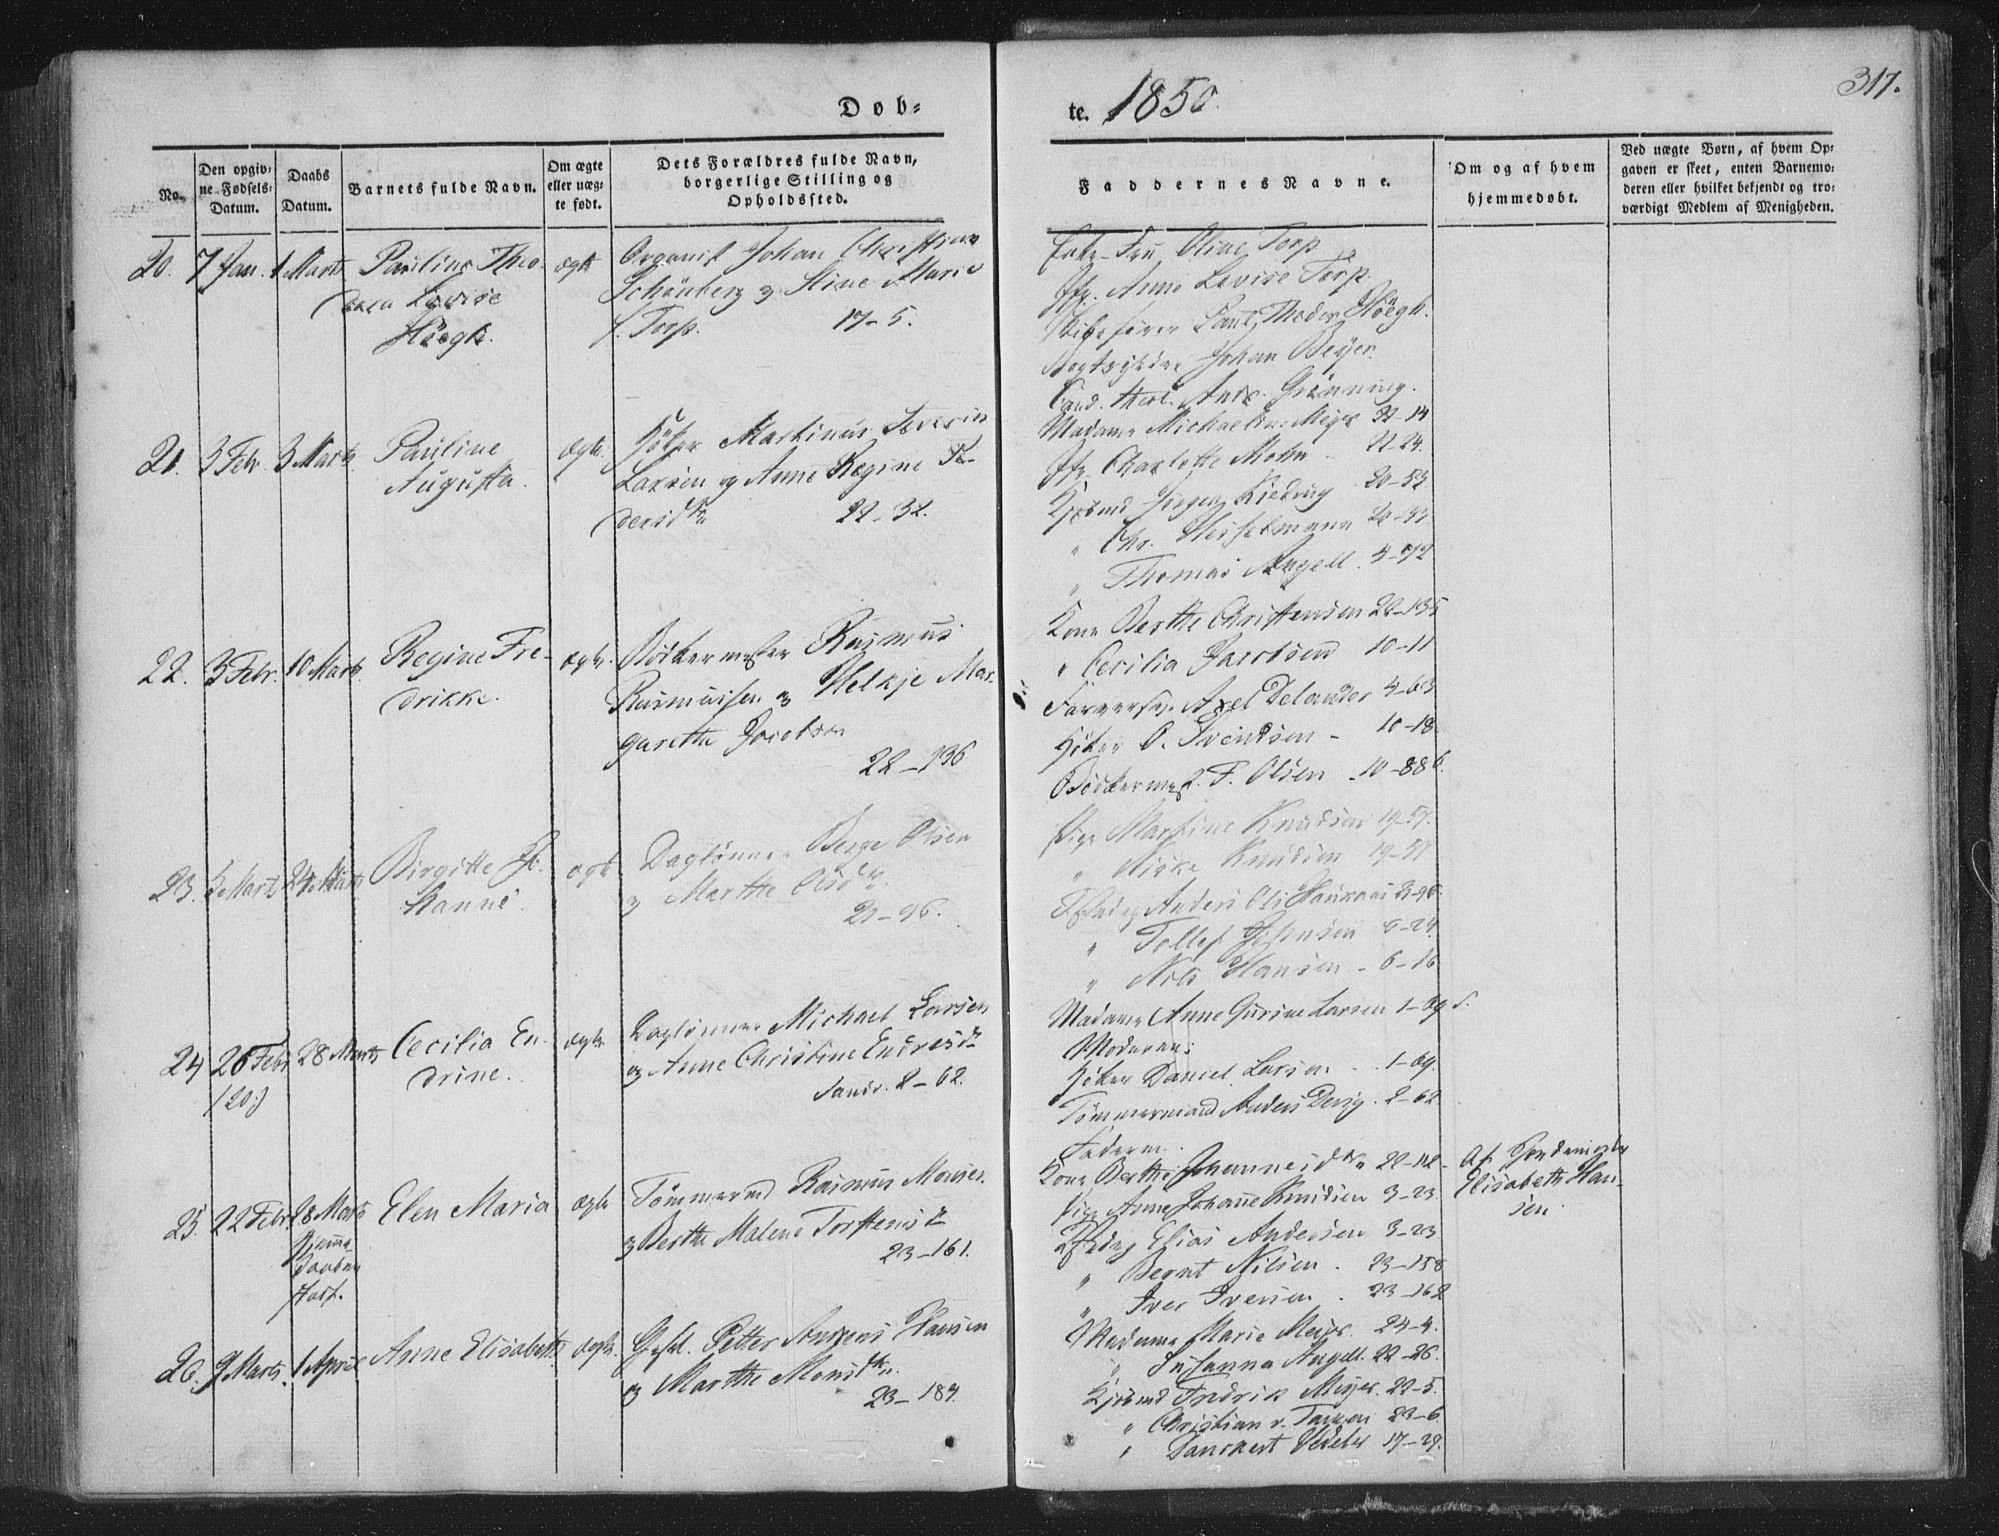 Døb-
te. 1850.
317.
No.
Den opgiv-
ne Fødsels-
Datum.
Daabs
Datum.
Barnets fulde Navn.
Om ægte
eller uæg-
te født.
Dets Forældres fulde Navn,
borgerlige Stilling og
Opholdssted.
Faddernes Navne.
Om og af hvem
hjemmedøbt.
Ved uægte Børn, af hvem Op-
gaven er skeet, enten Barnemo-
deren eller hvilket bekjendt og tro-
værdigt Medlem af Menigheden.
20. 7 Jan. 1 Marts Pauline Theo-
dora Lovise
Höegh.
ægte
Organist Johan Christian
Schönberg og Stine Marie
f. Torp. 17-5.
Fru Oline Torp
Jfr. Anne Lovise Torp.
Paul Theder Höegh.
Johan Beyer.
Cand. theol. Andr. Grönning.
21. 3 Febr. 3 Marts Pauline
Augusta.
ægte.
Höker Martinus Severin
Larsen og Anne Regine Pe-
dersdtr. 22-32.
Madame Michaeline Meyer 22-14
Jfr. Charlotte Mohn 22-24.
Kjöbmd Jörgen Kieding 20-53
" Chr. Hesselmann 20-33
" Thomas Angell. 4-72
22. 3 Febr. 10 Marts Regine Fre-
drikke.
ægte.
Bödkermester Rasmus
Rasmussen og Helkje Mar-
garetha Jacobsen
22-136
Kone Berthe Christensen 22-135
" Cecilia Jacobsen 10-11
Farversv. Axel Delander 4-63
Höker O. Svendsen - 10-18
Bödkermest. F. Olsen - 10-88b.
23. 5 Marts 24 Marts Birgitte Jo-
hanne.
ægte.
Daglönner Berge Olsen
og Marthe Olsdtr.
21-96.
Pige Martine Knudsen 19-57.
" Knudsen 19-57
Anders Ols. Haukaas 21-96
" Tollef Johnsen 6-24
" Nils Hansen - 6-16
24 26 Febr 28 Marts Cecilia En-
drine.
(20:)
ægte
Daglönner Michael Larsen
og Anne Christine Endresdtr
Sandv. 2-62.
Madame Anne Gurine Larsen 1-29 f.
Moderen:
Höker Daniel Larsen - 1-29.
Tömmermand Anders Devig. 2-62
Faderen.
25. 22 Febr. 28 Marts Elen Maria ægte
Hjemme-
daaben
stadf.
Tömmermd Rasmus Monsen
og Berthe Malene Torstensdtr
23-161.
Kone Berthe Johannesdtr 22-112-
Pige Anne Johanne Knudsen 3-23
Elias Andersen 3-23
" Bernt Nilsen. 23-158
" Iver Iversen. 23-162
Af Jordemoder
Elisabeth Han-
sen.
26. 9 Marts. 1 April Anne Elisabeth ægte.
Petter Andreas Hansen
og Marthe Monsdtr.
23-189.
Madame Marie Meyer. 24-4.
" Susanna Angell. 22-26.
Kjöbmd Fredrik Meyer. 22-5.
" Christian v. Tangen 23-6
" Danckert Vedeler 17-29.